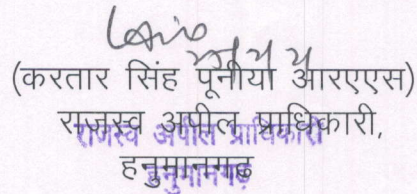 (करतार सिंह पूनीया आरएएस)
राजस्व अपील प्राधिकारी,
राजस्व अपील प्राधिकारी
हनुमानगढ़
हनुमानगढ़